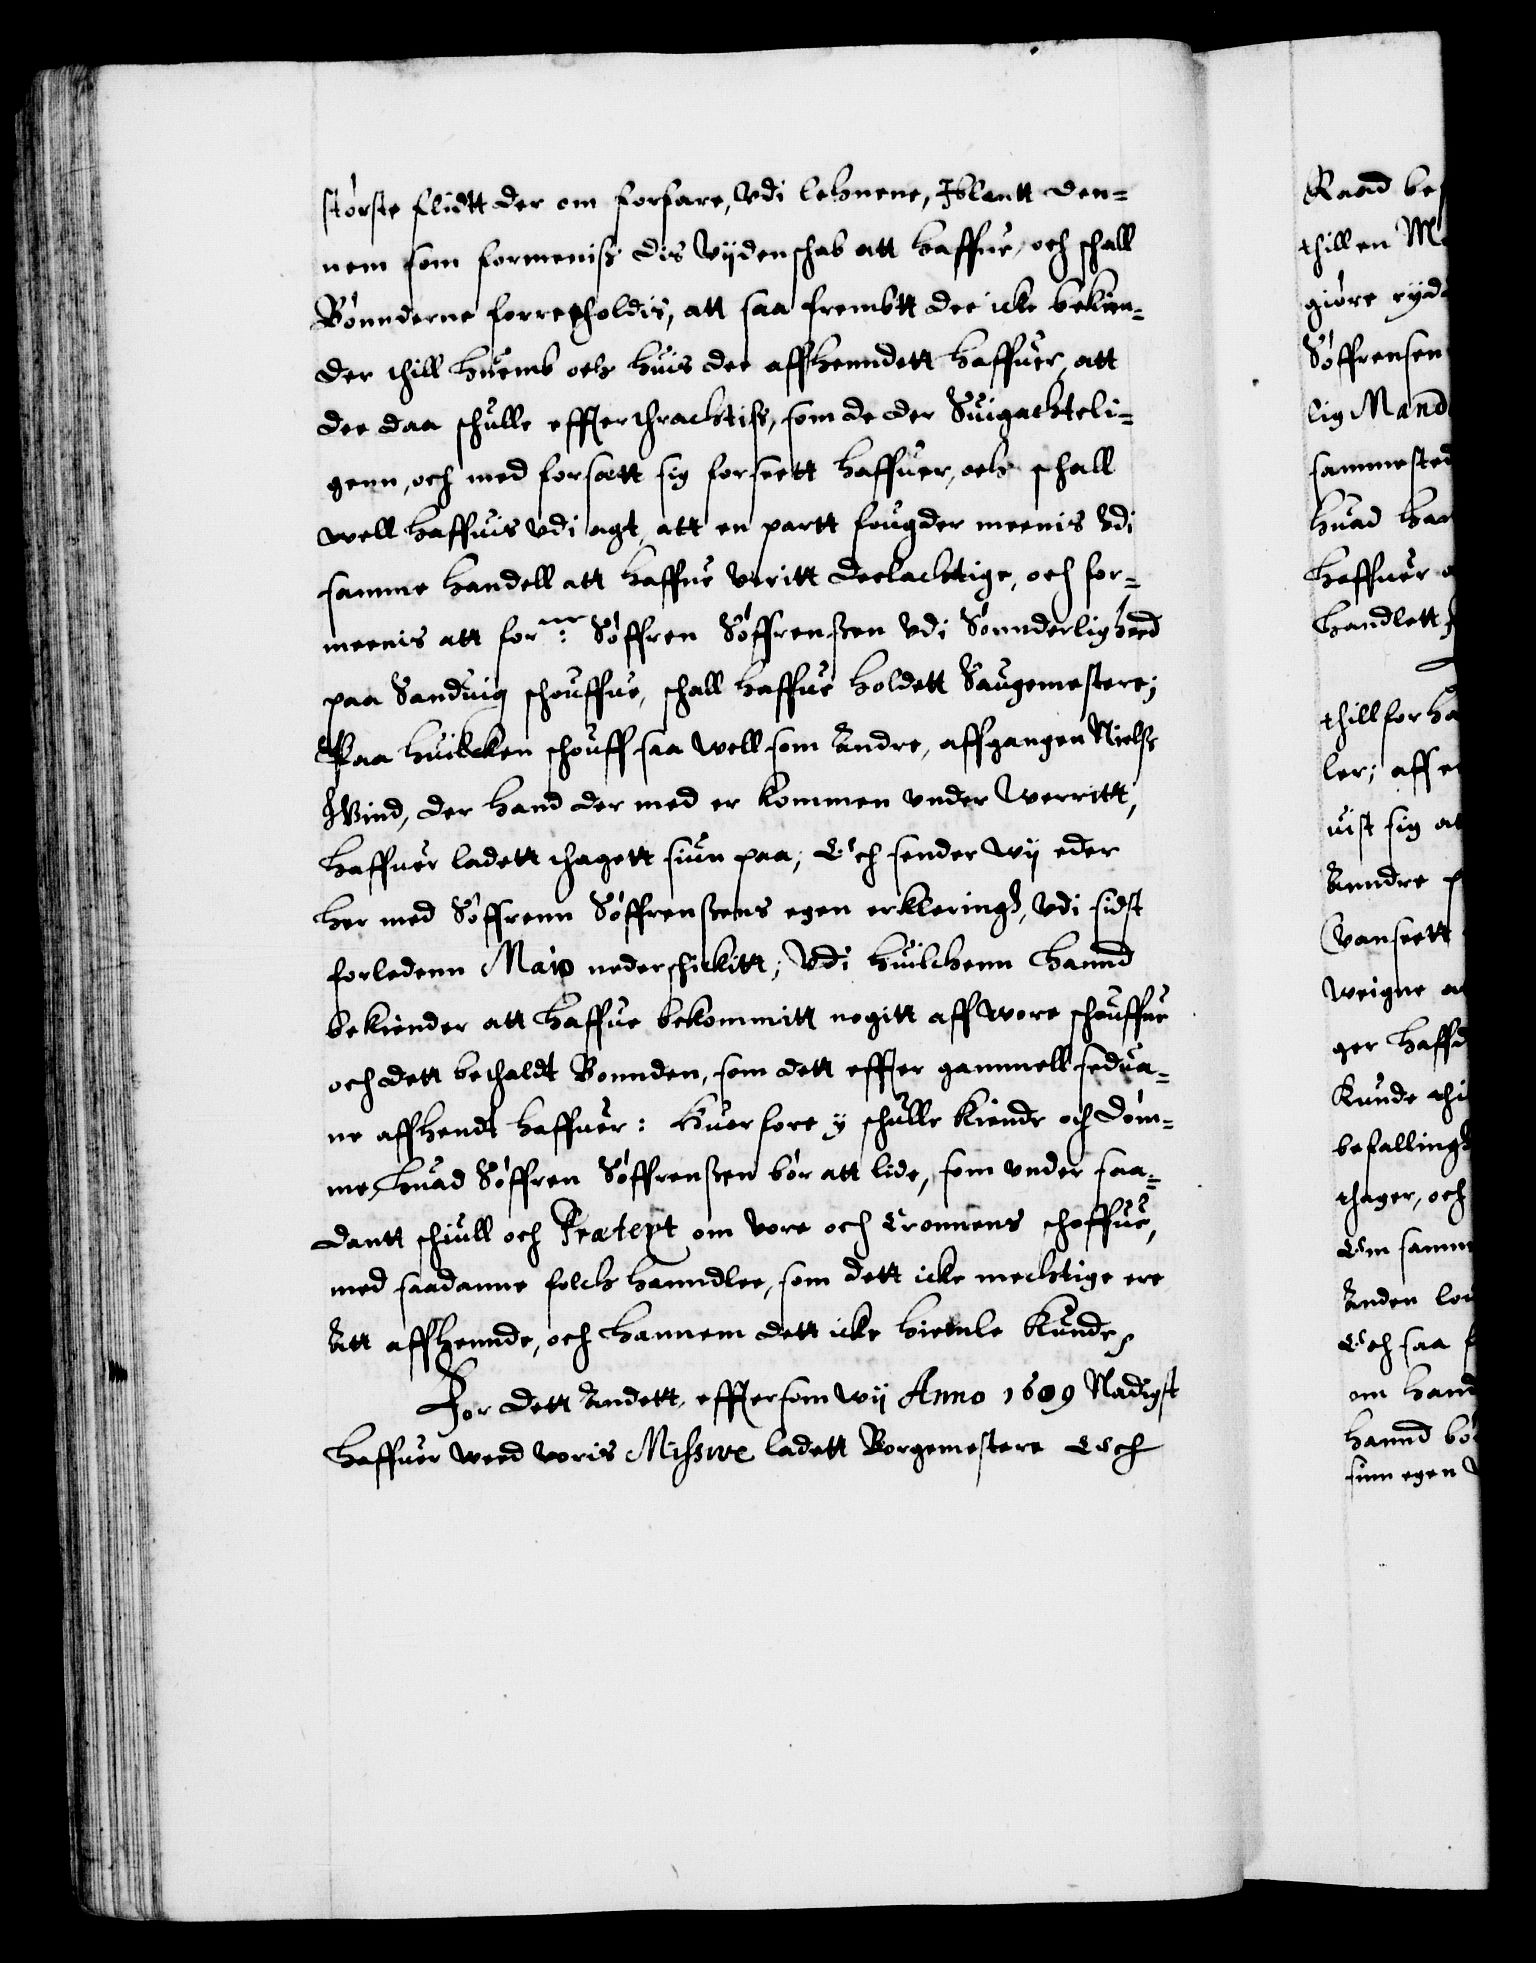 störste flidtt der om forfare, Vdi lehnene, Jblantt den-
nem som formeniß dis Vijdenschab att haffue, och schall
Bönnderne forreholdis, att saa frembtt dee icke bekien-
der thill huemb och huis dee affhenndett haffuer, att
dee daa schulle effter thrachtiß, som de der Suigachteli-
genn, och med forsatt sig forseett haffuer, och schall
well haffuis vdi agt, att en partt fougder meenis Vdi
samme handell att haffue veritt deelachtige, och for-
meenis att forne: Söffren Söffrenßen vdi Sönnderligheed
paa Sanduig schouffue, schall haffue holdett Saugemestere;
Paa huilcken schouff saa well som Andre, affgangen Nielß
Wind, der hand der med er kommen vnder Werritt,
haffuer ladett thagett siun paa; Och sender wij eder
her med Söffrenn Söffrenßens egen erkleringh, vdi sidst
forledenn Maio nederschickitt; Vdi huilchenn hannd
bekiender att haffue bekommitt nogitt aff vore schouffue
och dett bethaldt Bonnden, som dett effter gammell sedua-
ne affhendt haffuer: Huorfore y schulle kiende och döm-
me, huad Söffren Söffrenßen bör att lide, som vnder saa-
dantt schiull och Prætext om vore och Cronnens schoffue,
med saadanne folch hanndler, som dett icke mechtige ere
Att affhennde, och hannem dett icke hiemle kunde,
For dett Andett, effttersom wij Anno 1609 Nadigst
haffuer weed voris Missive ladett Borgemestere Och
Raad be
thill en M
giöre
Söffrensen
lig Mand
sammested
huad han
haffuer
handlett
thill for ha
ler; aff e
uist sig at
Anndre p
Vanseett
Weigne a
ger haffu
Kunde thi
befalling
thager, och
Om samm
Anden lou
Och saa f
om hand
hannd bö
sinn egen